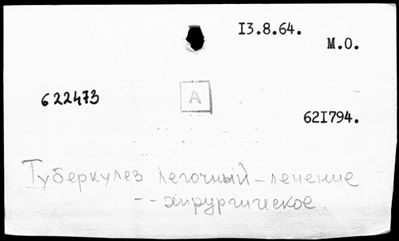 13.8.64.
М.О.
622473
А
621794.
Туберкулез легочный – лечение
–– хирургическое.